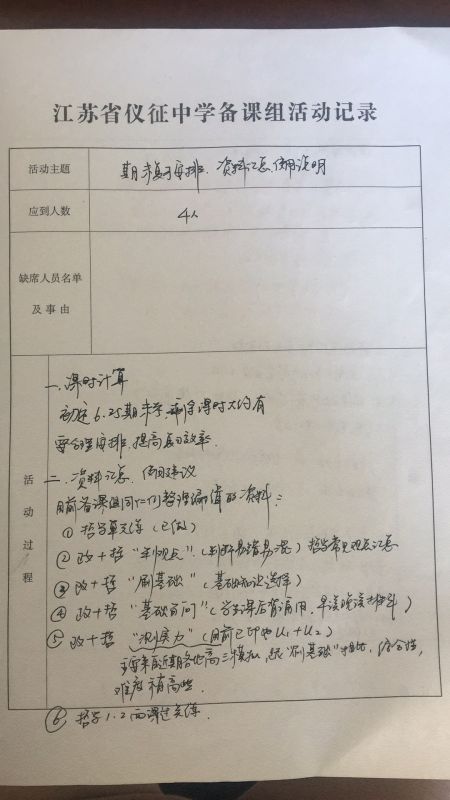 江苏省仪征中学备课组活动记录
活动主题 期末复习安排、资料汇总、使用说明
应到人数 4人
缺席人员名单
及事由
活动过程
一、课时计算
初定6.25期末考,剩余课时大约有
要合理安排,提高复习效率.
二、资料汇总、使用建议
目前备课组同仁们整理编辑的资料:
① 哲学单元练(已做)
② 政+哲“判观点”(判断易错易混)哲学常见观点汇总
③ 政+哲“刷基础”(基础知识选择)
④ 政+哲“基础百问”(学生课后背诵用,早读晚读材料)
⑤ 政+哲“测层力”(目前已印好U1+U2)
主要来自近期各地高三模拟,跟“刷基础”相比,综合性,
难度稍高些.
⑥ 哲学1.2两课过关练.